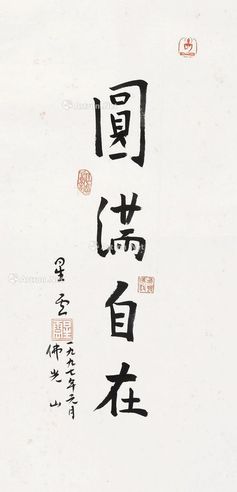 圓滿自在
星云
一九九七年元月
佛光山